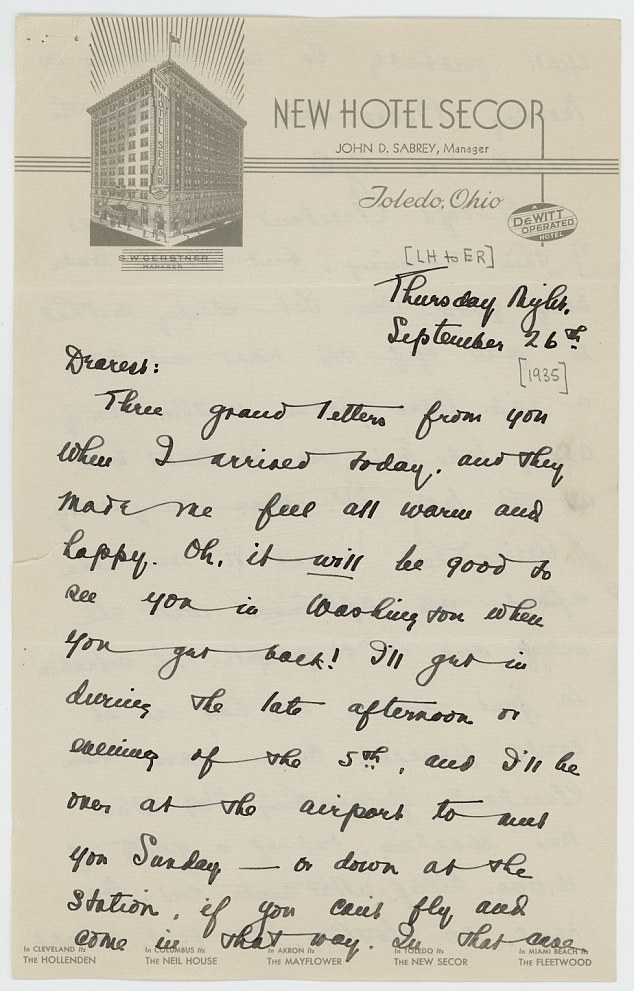 HOTEL SECOR
NEW HOTEL SECOR
JOHN D. SABREY, Manager
Toledo, Ohio
A
DeWITT
OPERATED
HOTEL
S.W. GERSTNER
MANAGER
[LH to ER]
Thursday Night,
September 26th
[1935]
Dearest:
Three grand letters from you
when I arrived today, and they
made me feel all warm and
happy. Oh, it will be good to
see you in Washington when
you get back! I'll get in
during the late afternoon or
evening of the 5th, and I'll be
over at the airport to meet
you Sunday — or down at the
station, if you can't fly and
come in that way. In that case
In CLEVELAND Its
THE HOLLENDEN
In COLUMBUS Its
THE NEIL HOUSE
In AKRON Its
THE MAYFLOWER
In TOLEDO Its
THE NEW SECOR
In MIAMI BEACH Its
THE FLEETWOOD